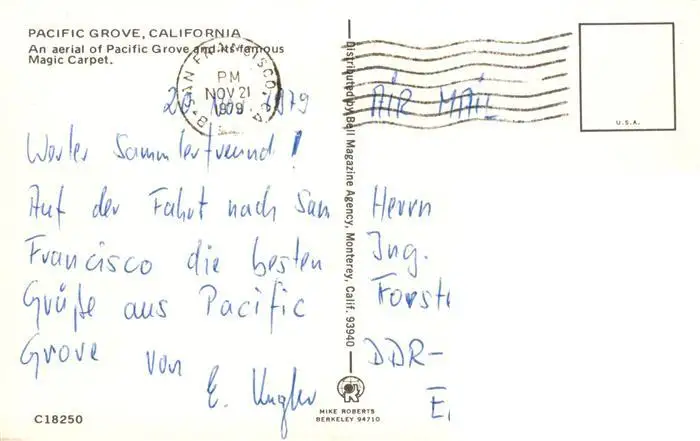 PACIFIC GROVE, CALIFORNIA
An aerial of Pacific Grove and its famous
Magic Carpet.
SAN FRANCISCO, CA
PM
NOV 21
1979
20. Nov. 1979
Werter Sammlerfreund!
Auf der Fahrt nach San
Francisco die besten
Grüße aus Pacific
Grove von
E.
C18250
Distributed by Bell Magazine Agency, Monterey, Calif. 93940
MIKE ROBERTS
BERKELEY 94710
U.S.A.
AIR MAIL
Herrn
Ing.
Forst
DDR-
E